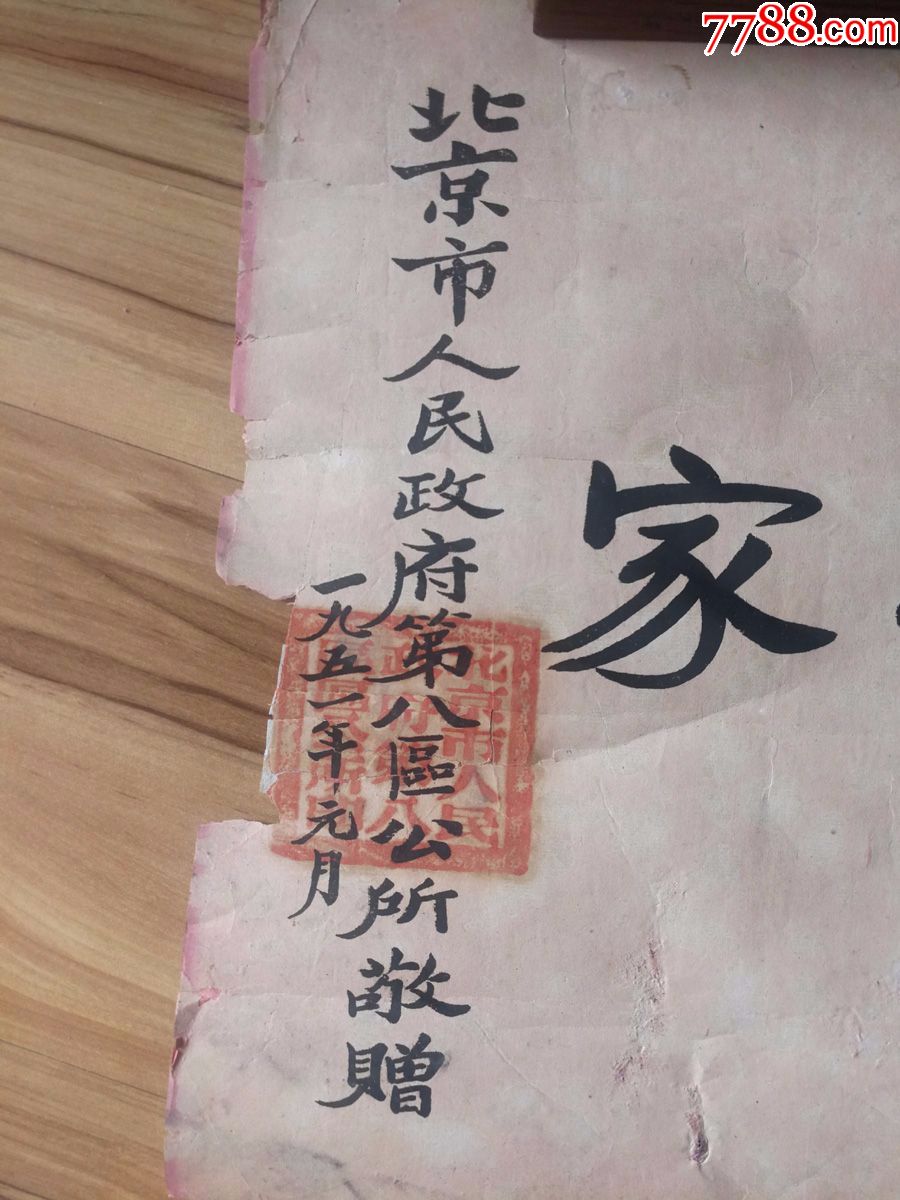 7788.com
家
北京市人民政府第八區公所敬贈
一九五一年元月
北京市人民
政府第八
區公所印